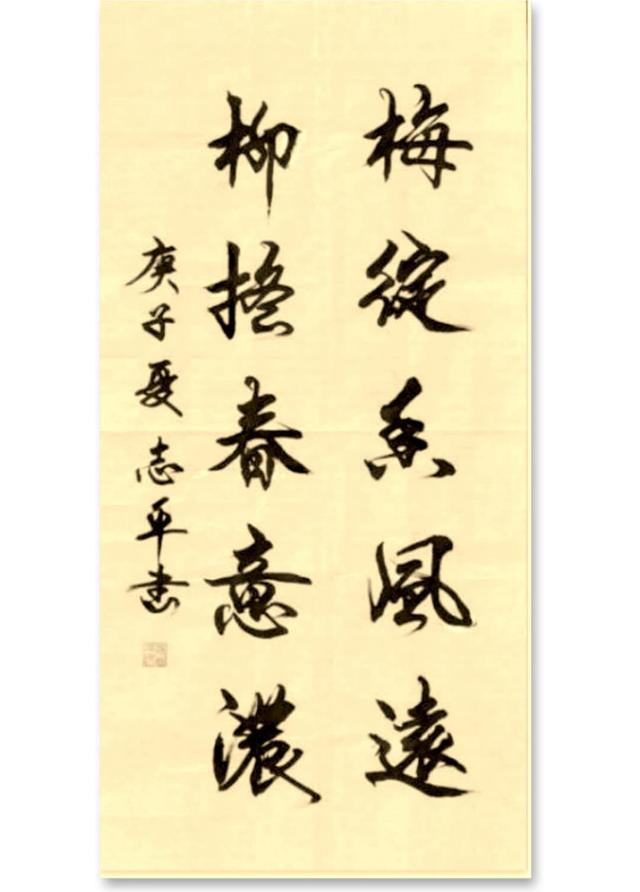 梅綻香風遠
柳搖春意濃
庚子夏志平書